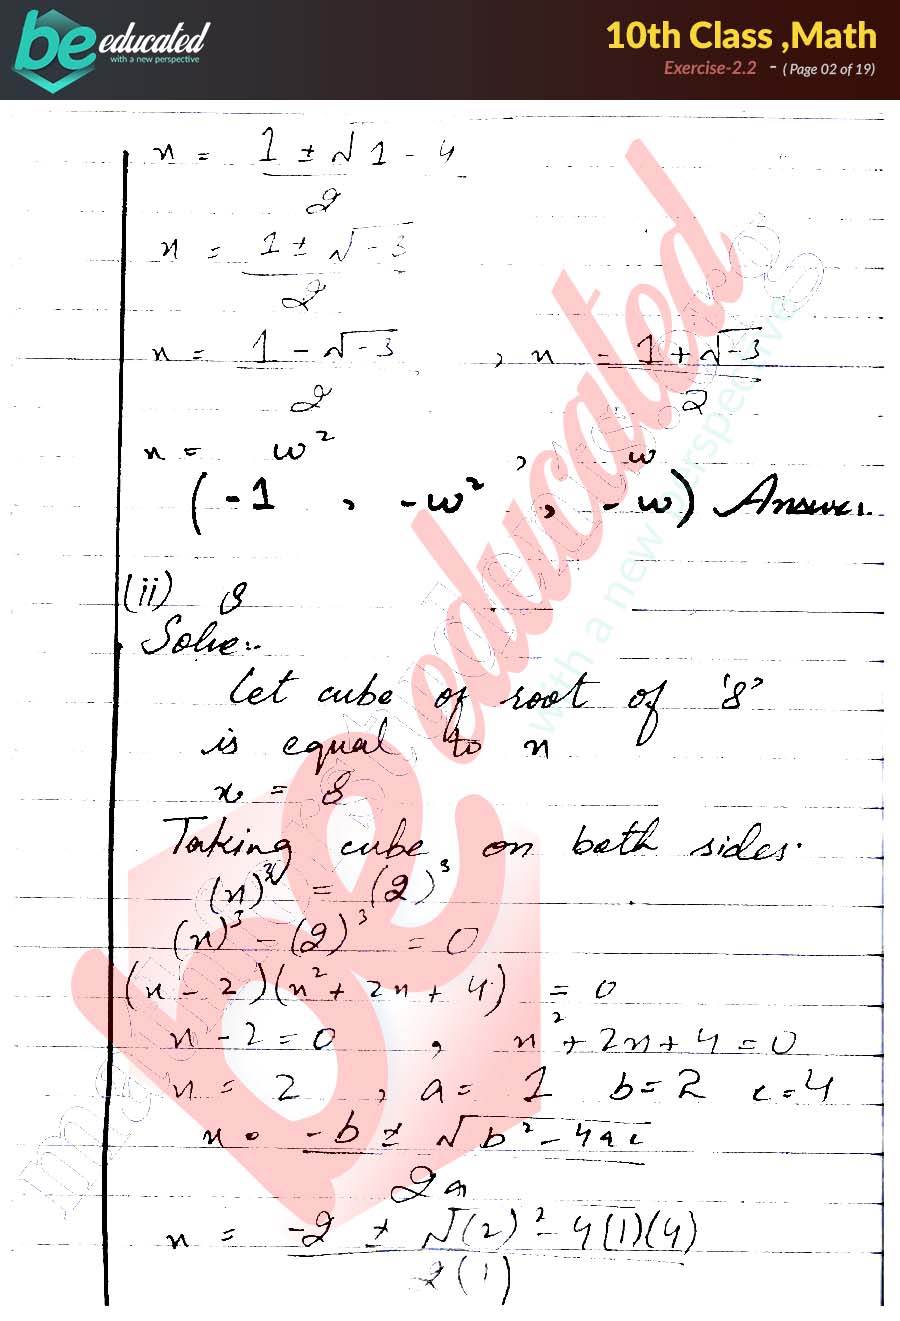 be educated
with a new perspective
10th Class ,Math
Exercise-2.2 - ( Page 02 of 19)
x = 1 ± √1 - 4
2
x = 1 ± √-3
2
x = 1 - √-3 , x = 1 + √-3
2 2
x = w² , w
(-1 , -w² , -w) Answer.
(ii) 8
Solve:-
Let cube of root of '8'
is equal to x
x = 8
Taking cube on both sides.
(x)³ = (2)³
(x)³ - (2)³ = 0
(x - 2)(x² + 2x + 4) = 0
x - 2 = 0 , x² + 2x + 4 = 0
x = 2 , a = 1 b = 2 c = 4
x = -b ± √b² - 4ac
2a
x = -2 ± √(2)² - 4(1)(4)
2(1)
be educated
with a new perspective